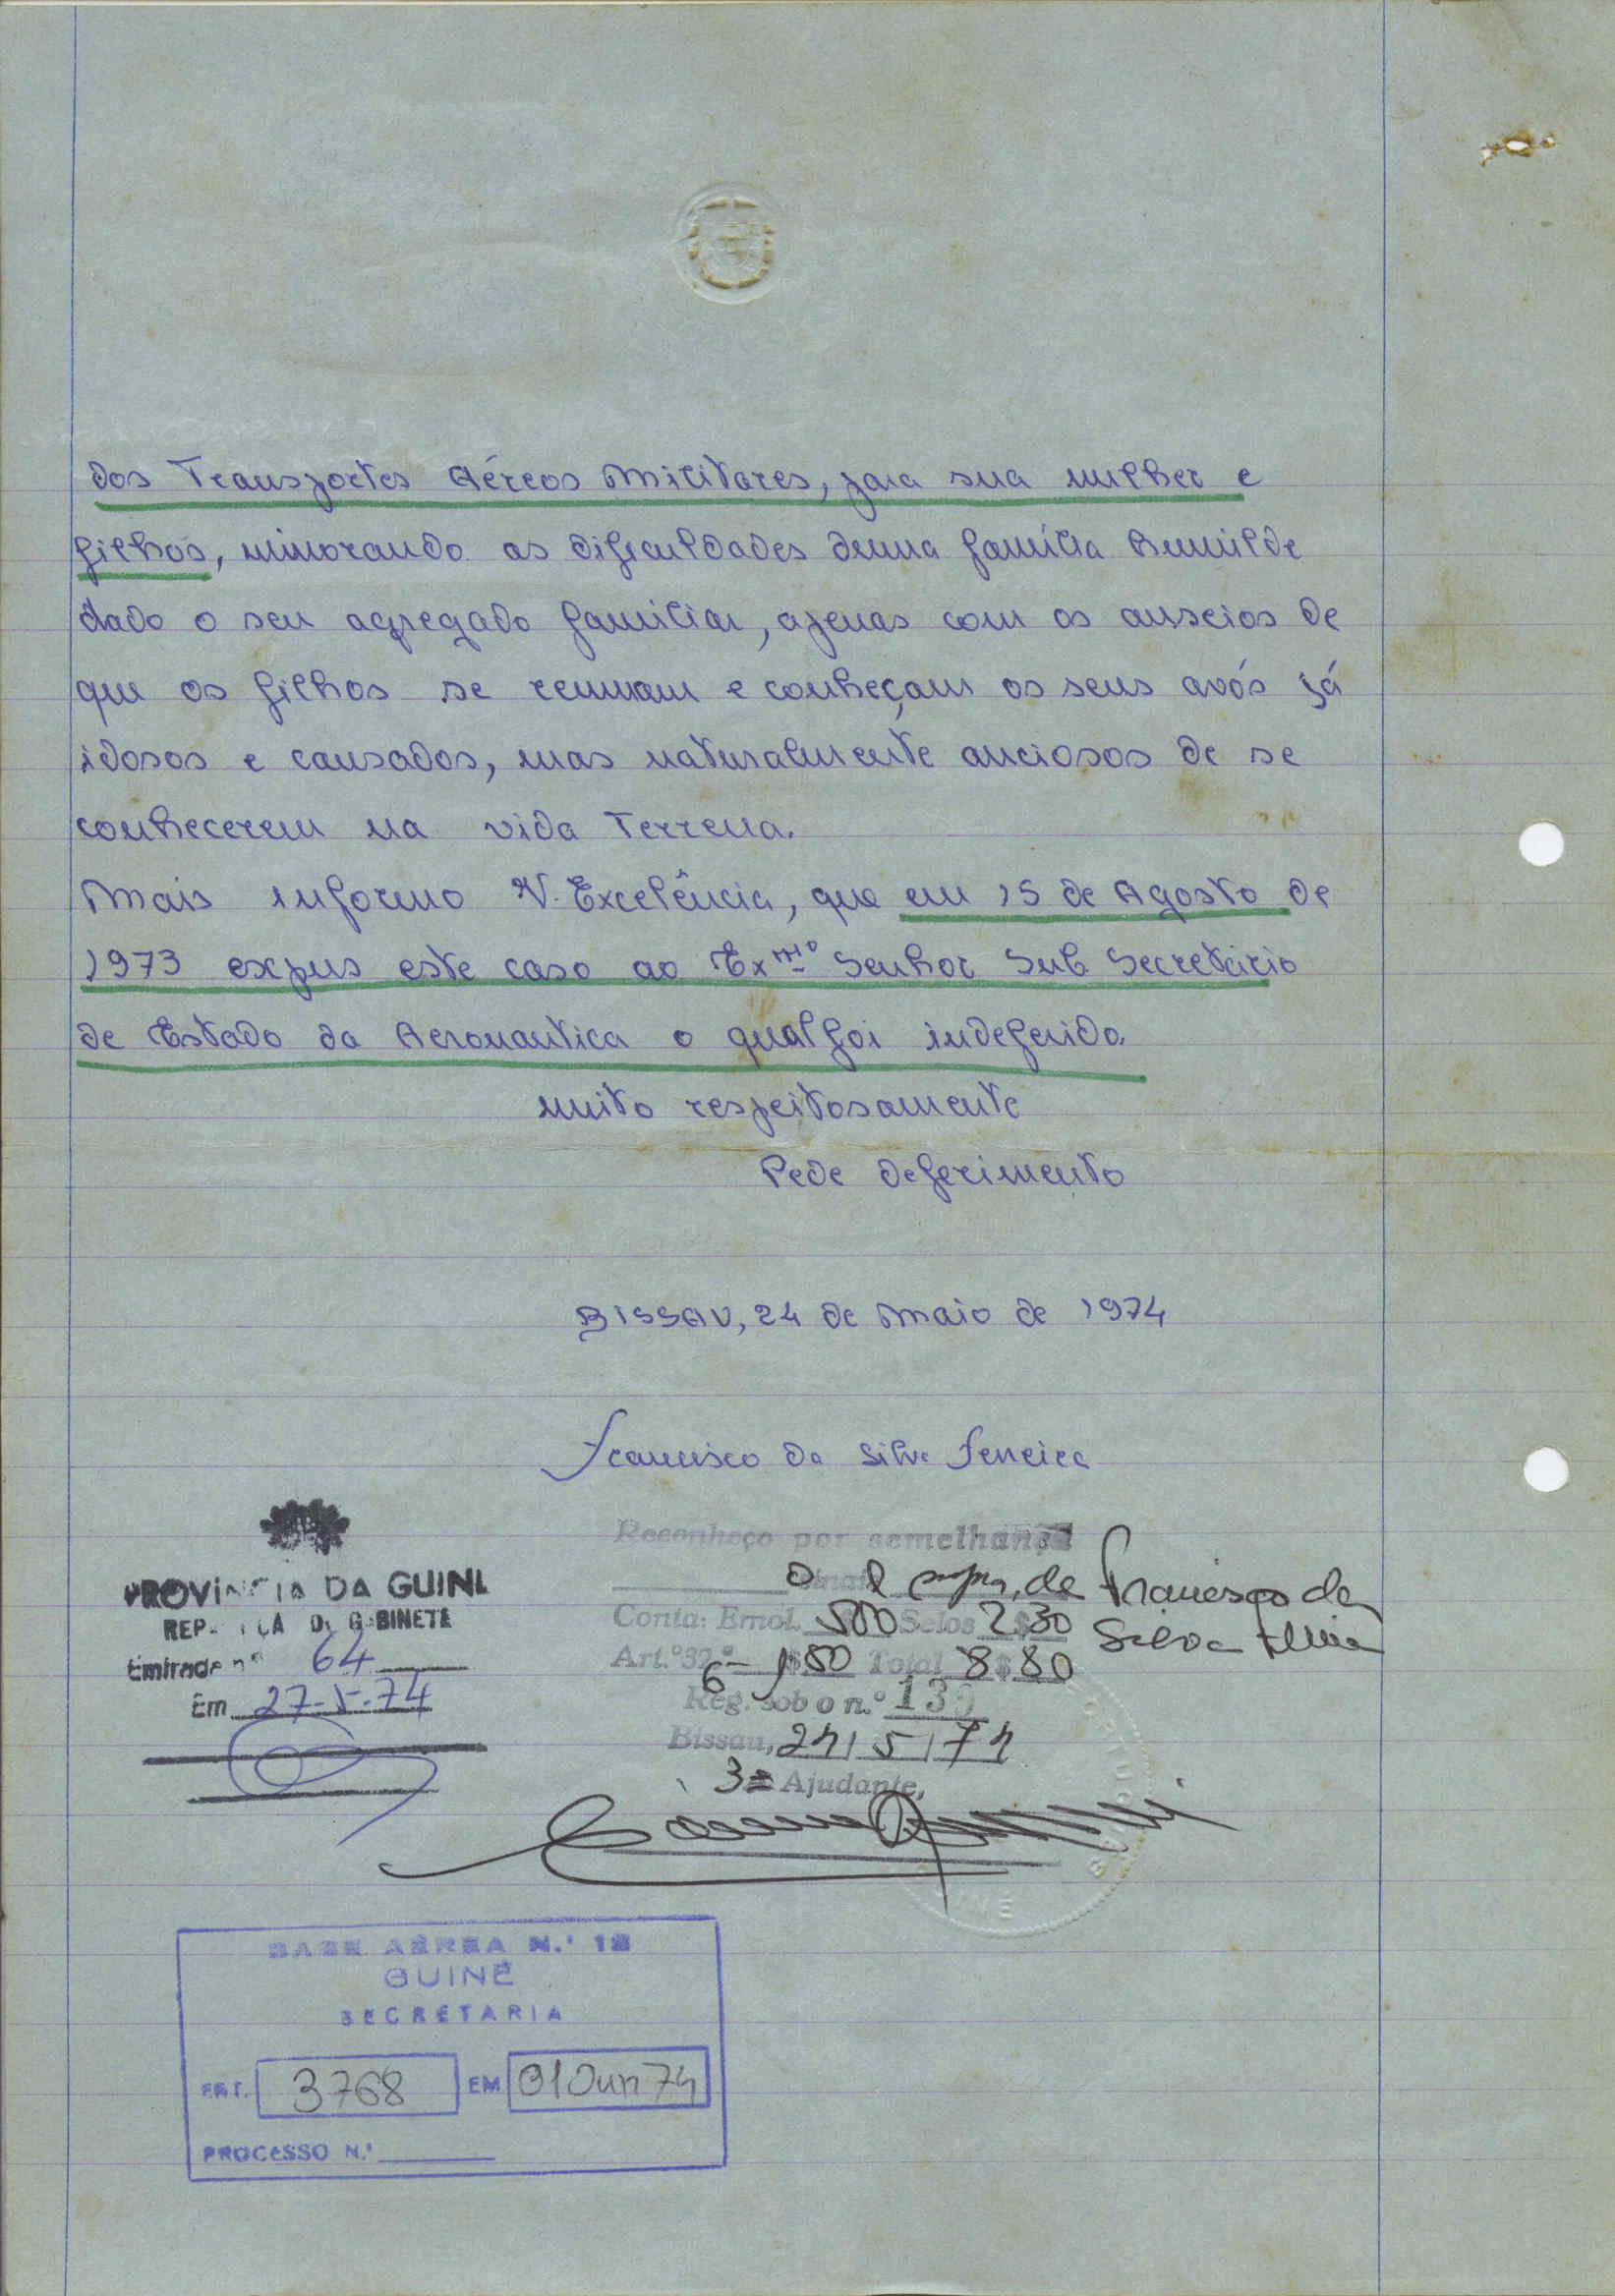 dos Transportes Aéreos Militares, para sua mulher e
filhos, minorando as dificuldades duma família humilde
dado o seu agregado familiar, apenas com os anseios de
que os filhos se reunam e conheçam os seus avós já
idosos e cansados, mas naturalmente anciosos de se
conhecerem na vida Terrena.
Mais informo V. Excelência, que em 15 de Agosto de
1973 expus este caso ao Exmº Senhor Sub Secretário
de Estado da Aeronautica o qual foi indeferido.
muito respeitosamente
Pede deferimento
BISSAU, 24 de Maio de 1974
Francisco da Silva Ferreira
Reconheço por semelhança
de Francisco da
Silva
Conta: Emol. 500 Selos 2$30
Art.º 32.º 1$50 Total 8$80
Reg. sob o n.º
Bissau, 24/5/74
3º Ajudante,
PROVÍNCIA DA GUINÉ
GABINETE
Entrada nº 64
Em 27-5-74
GUINÉ
BASE AÉREA N.º 12
GUINÉ
SECRETARIA
ENT. 3768 EM 01 Jun 74
PROCESSO N.º